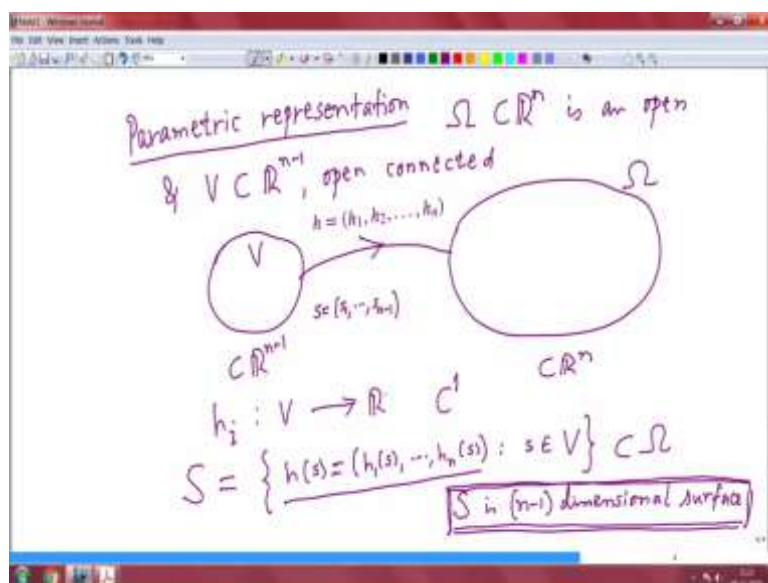 File Edit View Insert Actions Tools Help
Parametric representation Ω ⊂ ℝⁿ is an open
& V ⊂ ℝⁿ⁻¹, open connected
Ω
h = (h₁, h₂, ..., hₙ)
V
s = (s₁, ..., sₙ₋₁)
⊂ ℝⁿ⁻¹
⊂ ℝⁿ
hᵢ : V → ℝ C¹
S = { h(s) = (h₁(s), ..., hₙ(s)) : s ∈ V } ⊂ Ω
S is (n-1) dimensional surface